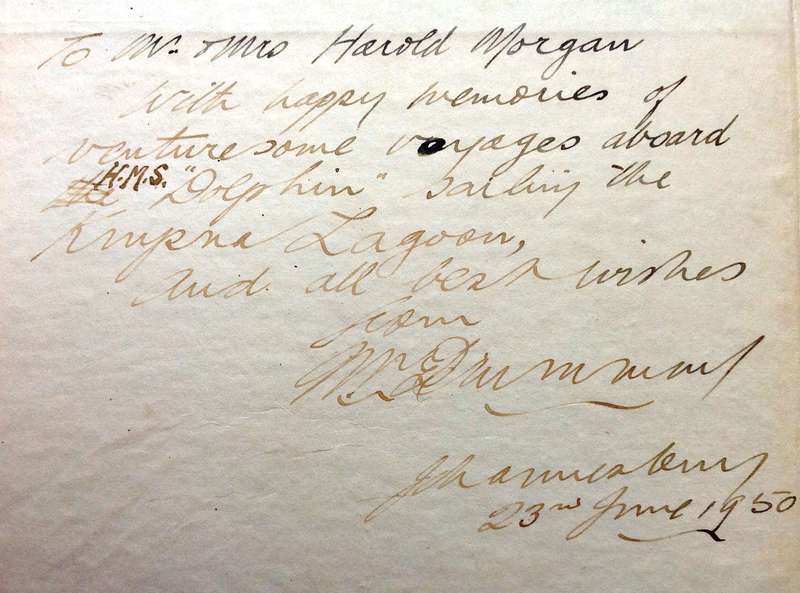 To Mr. & Mrs Harold Morgan
With happy memories of
venturesome voyages aboard
the H.M.S. "Dolphin" sailing the
Knysna Lagoon,
and all best wishes
from
Drummond
Johannesburg
23rd June, 1950